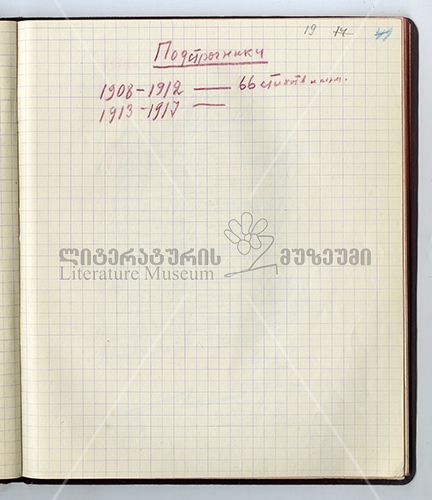 19 14
Подстрочники
1908-1912 — 66
1913-1917 —
ლიტერატურის მუზეუმი
Literature Museum